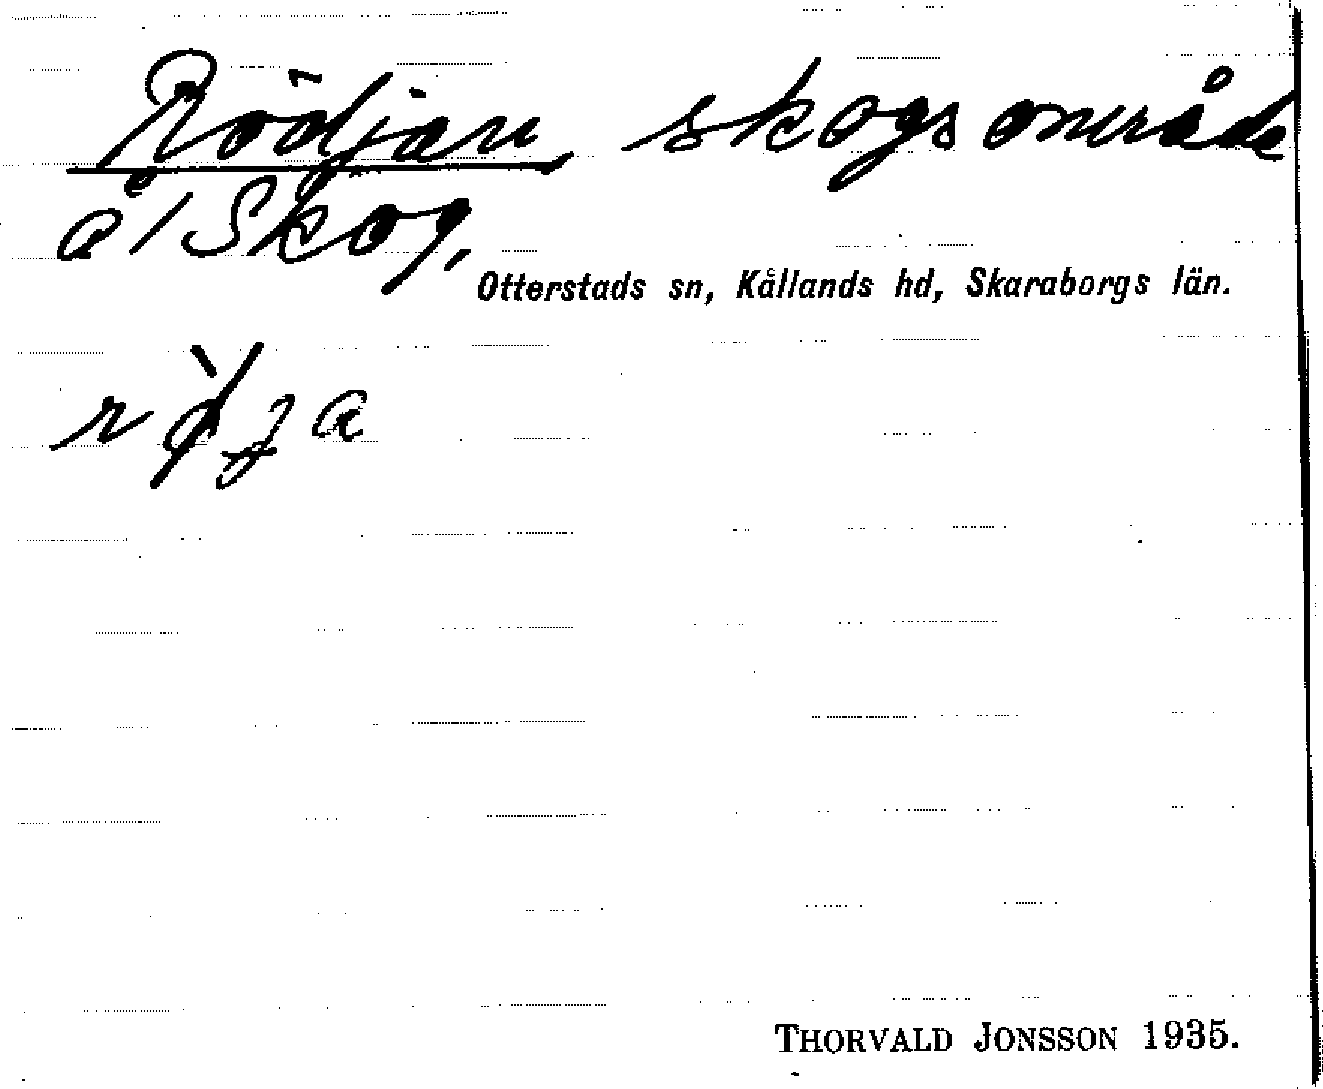 Rödjan, skogsområde
å / Skog,
Otterstads sn, Kållands hd, Skaraborgs län.
rø̀ʝa
THORVALD JONSSON 1935.